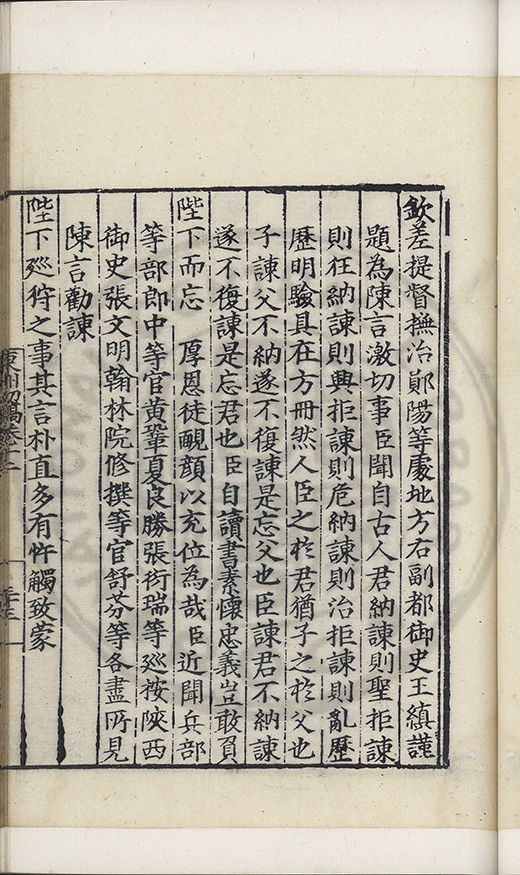 欽差提督撫治鄖陽等處地方右副都御史王縝謹
題為陳言激切事臣聞自古人君納諫則聖拒諫
則狂納諫則興拒諫則危納諫則治拒諫則亂歷
歷明驗具在方冊然人臣之於君猶子之於父也
子諫父不納遂不復諫是忘父也臣諫君不納諫
遂不復諫是忘君也臣自讀書素懷忠義豈敢負
陛下而忘 厚恩徒靦顏以充位為哉臣近聞兵部
等部郎中等官黃鞏夏良勝張衍瑞等廵按陝西
御史張文明翰林院修撰等官舒芬等各盡所見
陳言勸諫
陛下廵狩之事其言朴直多有忤觸致蒙